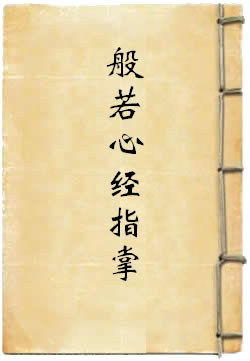 般若心经指掌